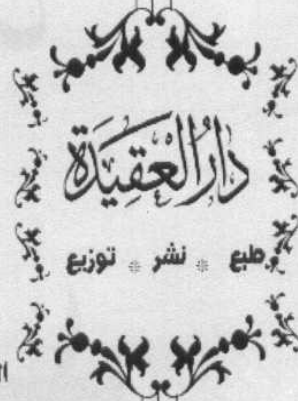 دَارُ الْعَقِيدَةِ
طبع * نشر * توزيع